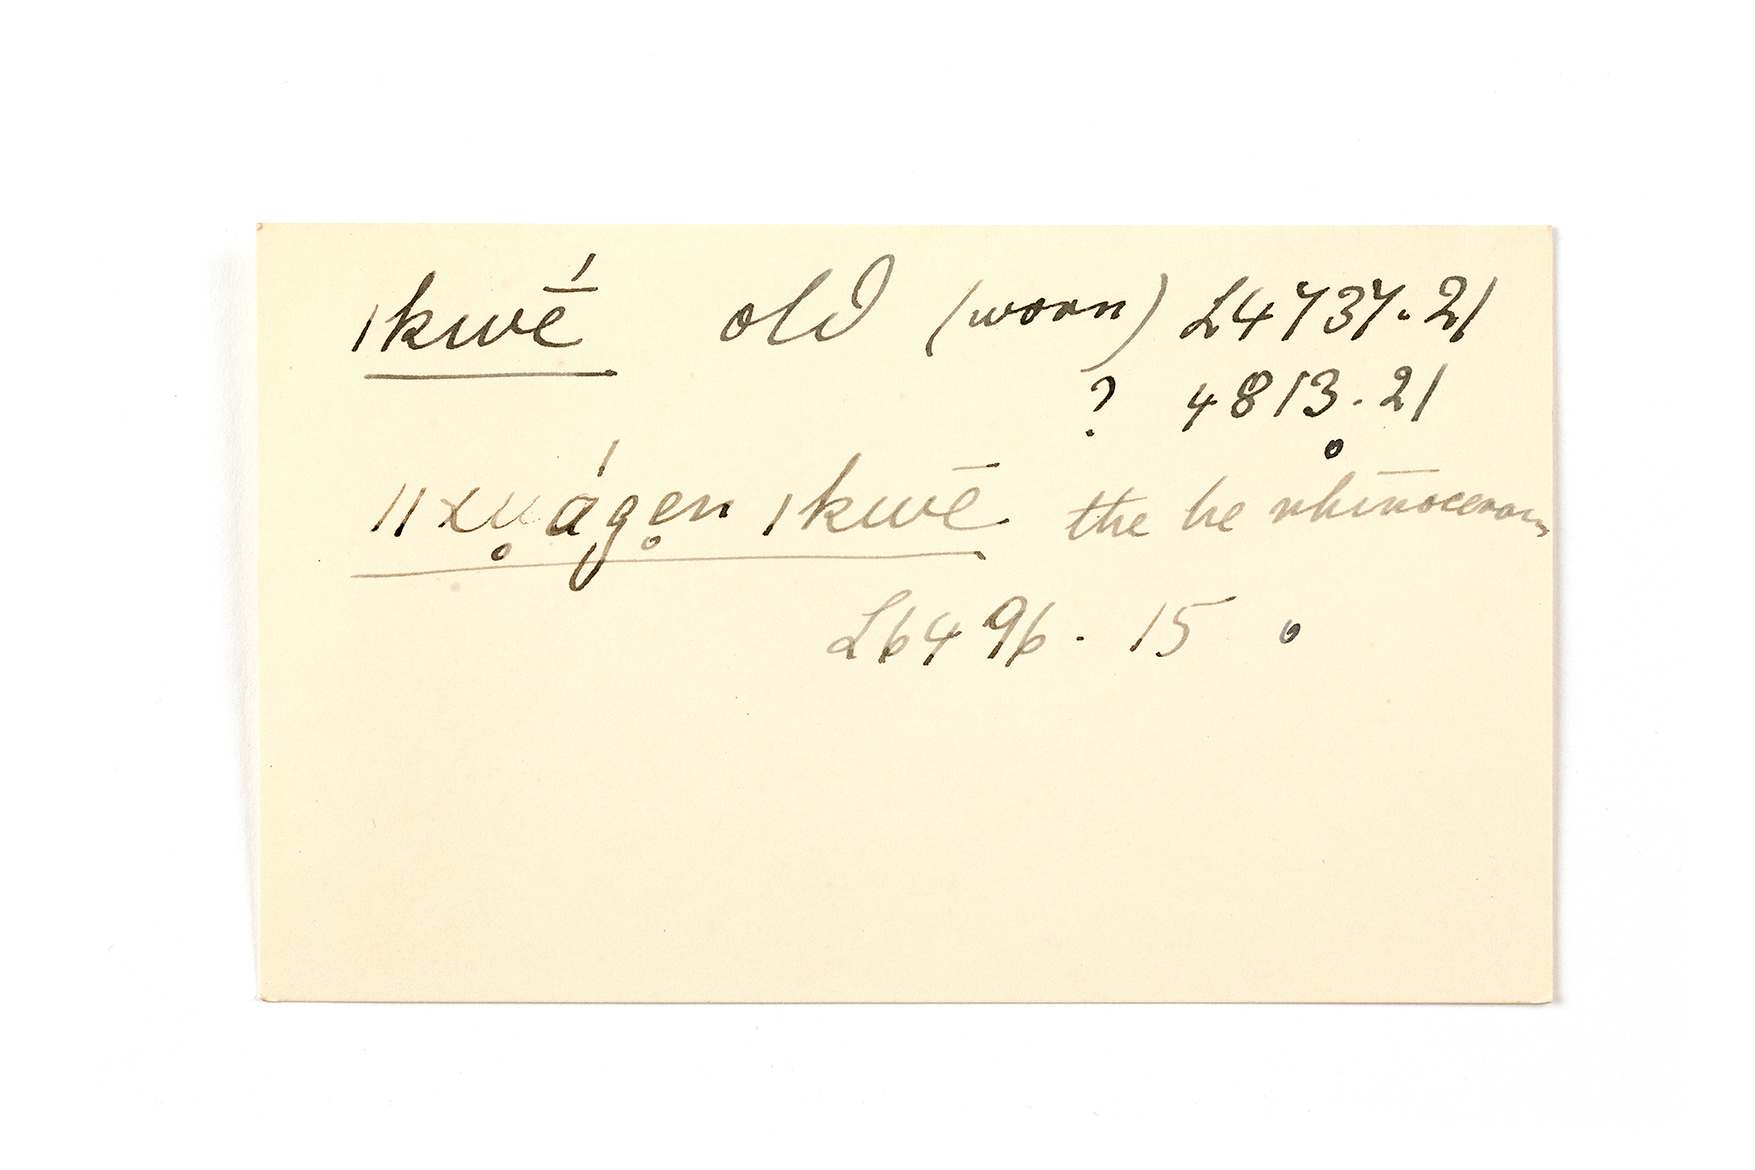 <u>ǀkwḗ</u> old (worn) L4737.21
? 4813.21
<u>ǁxu̥áge̥n ǀkwē</u> the he rhinoceros
L6496. 15